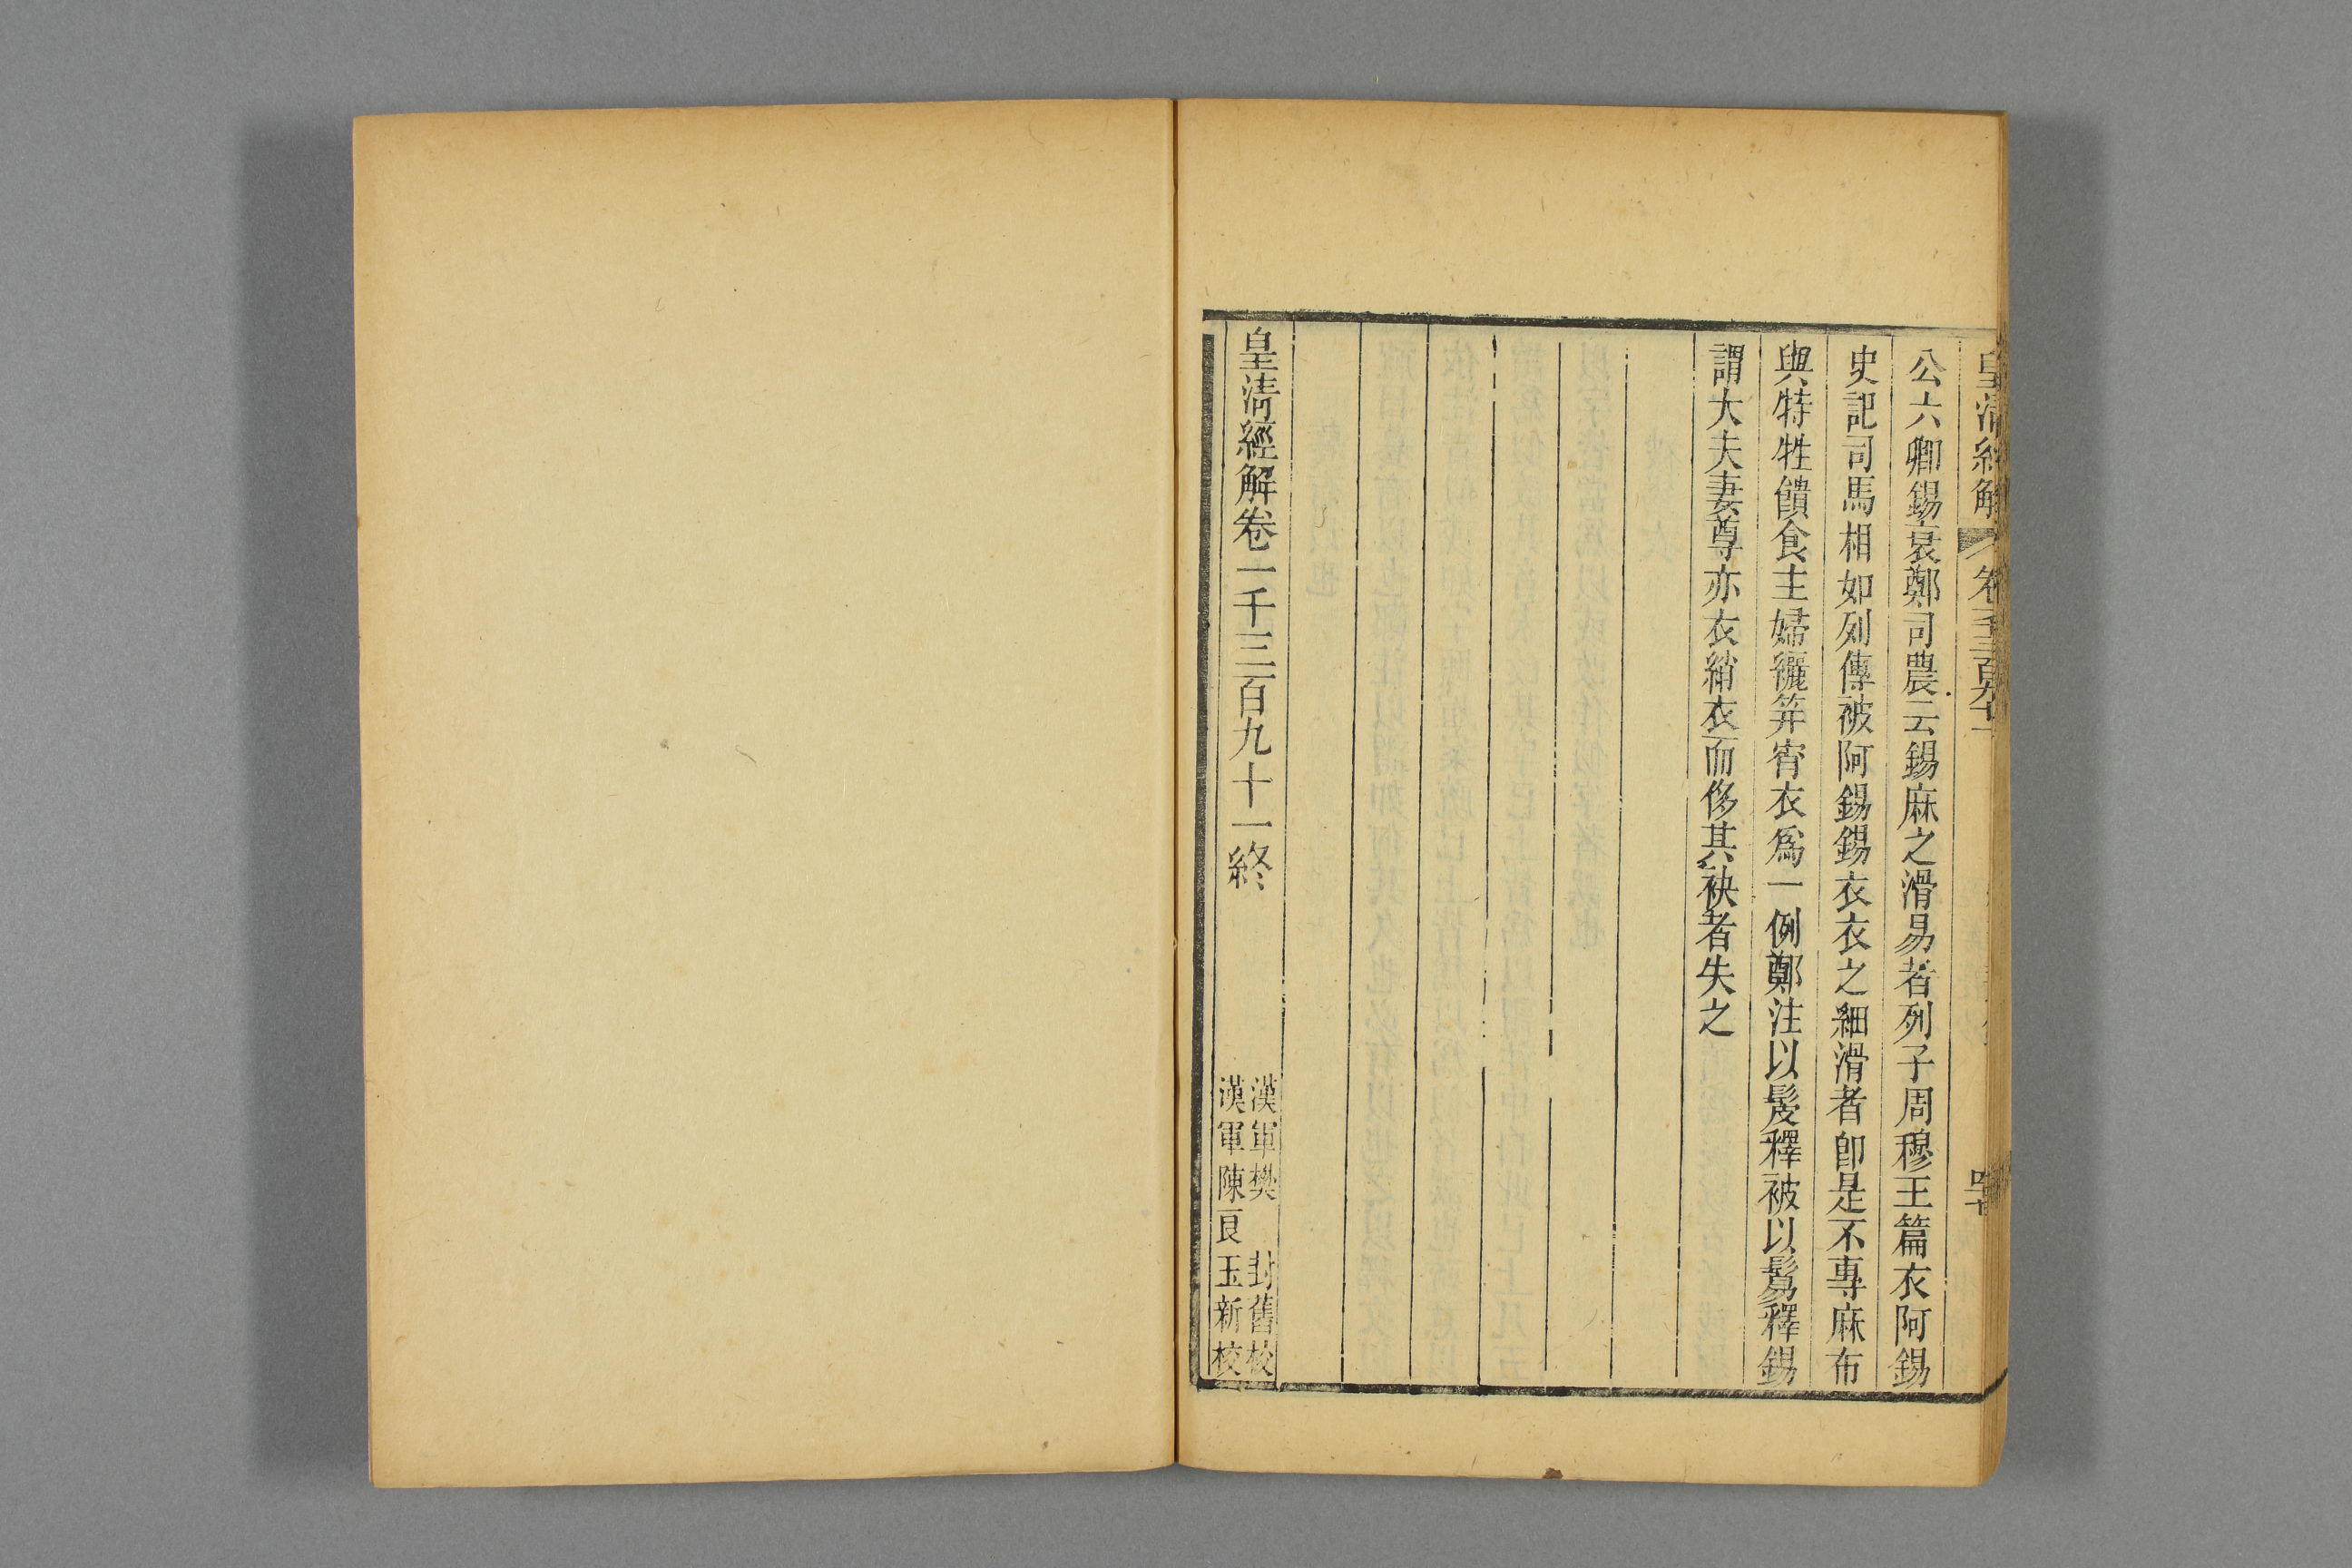 皇清經解 卷一千三百九十一
公六卿錫衰鄭司農云錫麻之滑易者列子周穆王篇衣阿錫
史記司馬相如列傳被阿錫錫衣衣之細滑者卽是不專麻布
與特牲饋食主婦纚笄宵衣爲一例鄭注以髲釋被以鬄釋錫
謂大夫妻尊亦衣綃衣而侈其袂者失之
皇清經解卷一千三百九十一終
漢軍樊封舊校
漢軍陳良玉新校